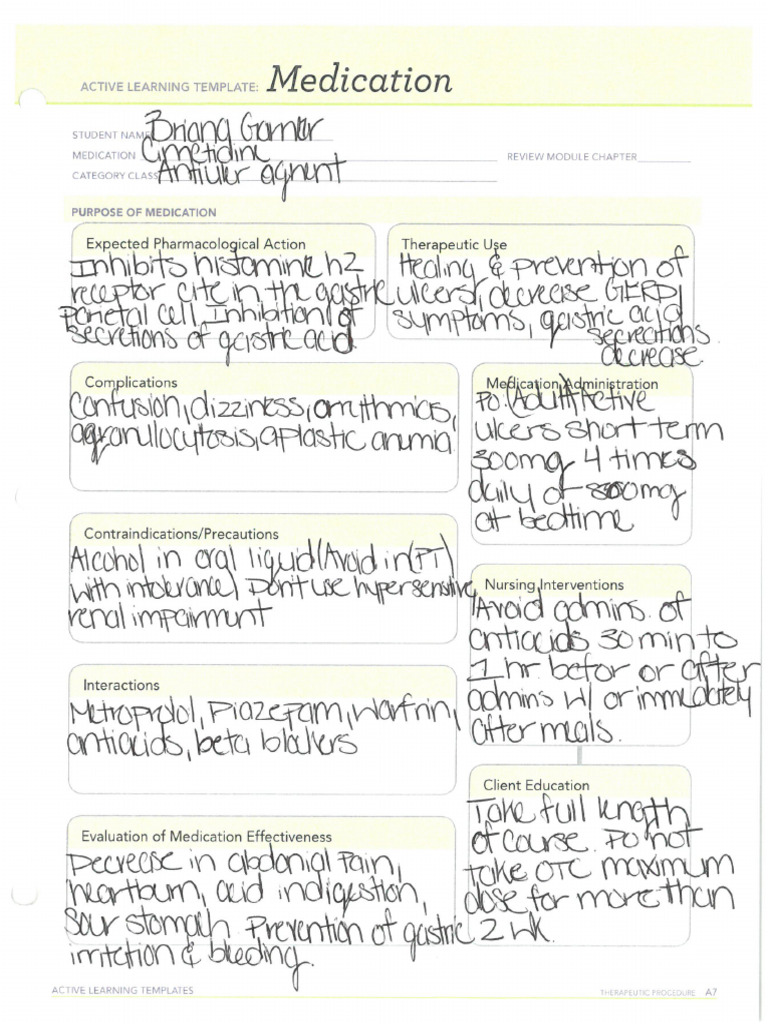 ACTIVE LEARNING TEMPLATE: Medication
STUDENT NAME Briana Garner
MEDICATION Cimetidine REVIEW MODULE CHAPTER
CATEGORY CLASS Antiulcer agnent
PURPOSE OF MEDICATION
Expected Pharmacological Action
Inhibits histamine h2
receptor cite in the gastric
parietal cell. Inhibition of
secretions of gastric acid
Therapeutic Use
Healing & prevention of
ulcers, decrease GERD
symptoms, gastric acid
secreations
decrease.
Complications
Confusion, dizziness, arrythmias,
agranulocytosis, aplastic anumia
Medication Administration
PO: (Adult) Active
ulcers short term
300mg 4 times
daily of 800mg
at bedtime
Contraindications/Precautions
Alcohol in oral liquid (Avoid in (PT)
with intolerance) Don't use hypersensitive,
renal impairment
Nursing Interventions
Avoid admins. of
antiacids 30 min to
1 hr. befor or after
admins w/ or immediately
after meals.
Interactions
Metroprolol, Diazepam, warfrin,
antiacids, beta blockers
Client Education
Take full length
of course. Do not
take OTC maximum
dose for more than
2 wk.
Evaluation of Medication Effectiveness
Decrease in abdonial pain,
heartburn, acid indigestion,
Sour stomach. Prevention of gastric
irritation & bleeding.
ACTIVE LEARNING TEMPLATES THERAPEUTIC PROCEDURE A7